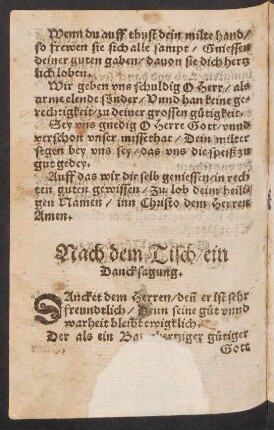 Wenn du auff thust dein milte hand /
so frewen sie sich alle sampt / Gniessen
deiner guten gaben / dauon sie dich hertz
lich loben.
Wir geben vns schuldig O Herr / als
arme elende sünder / Vnnd han keine ge-
rechtigkeit / zu deiner grossen gütigkeit.
Sey vns gnedig O Herre Gott / vnnd
verschon vnser missethat / Dein milter
segen bey vns sey / das vns die speiß zu
gut gedey.
Auff das wir die selb geniessen / in rech
ten guten gewissen / Zu lob deim heili-
gen Namen / inn Christo dem Herren
Amen.
Nach dem Tisch / ein
Dancksagung.
DAncket dem Herren / deñ er ist sehr
freundtlich / Denn seine güt vnnd
warheit bleibt ewigklich.
Der als ein Barmhertziger gütiger
Gott